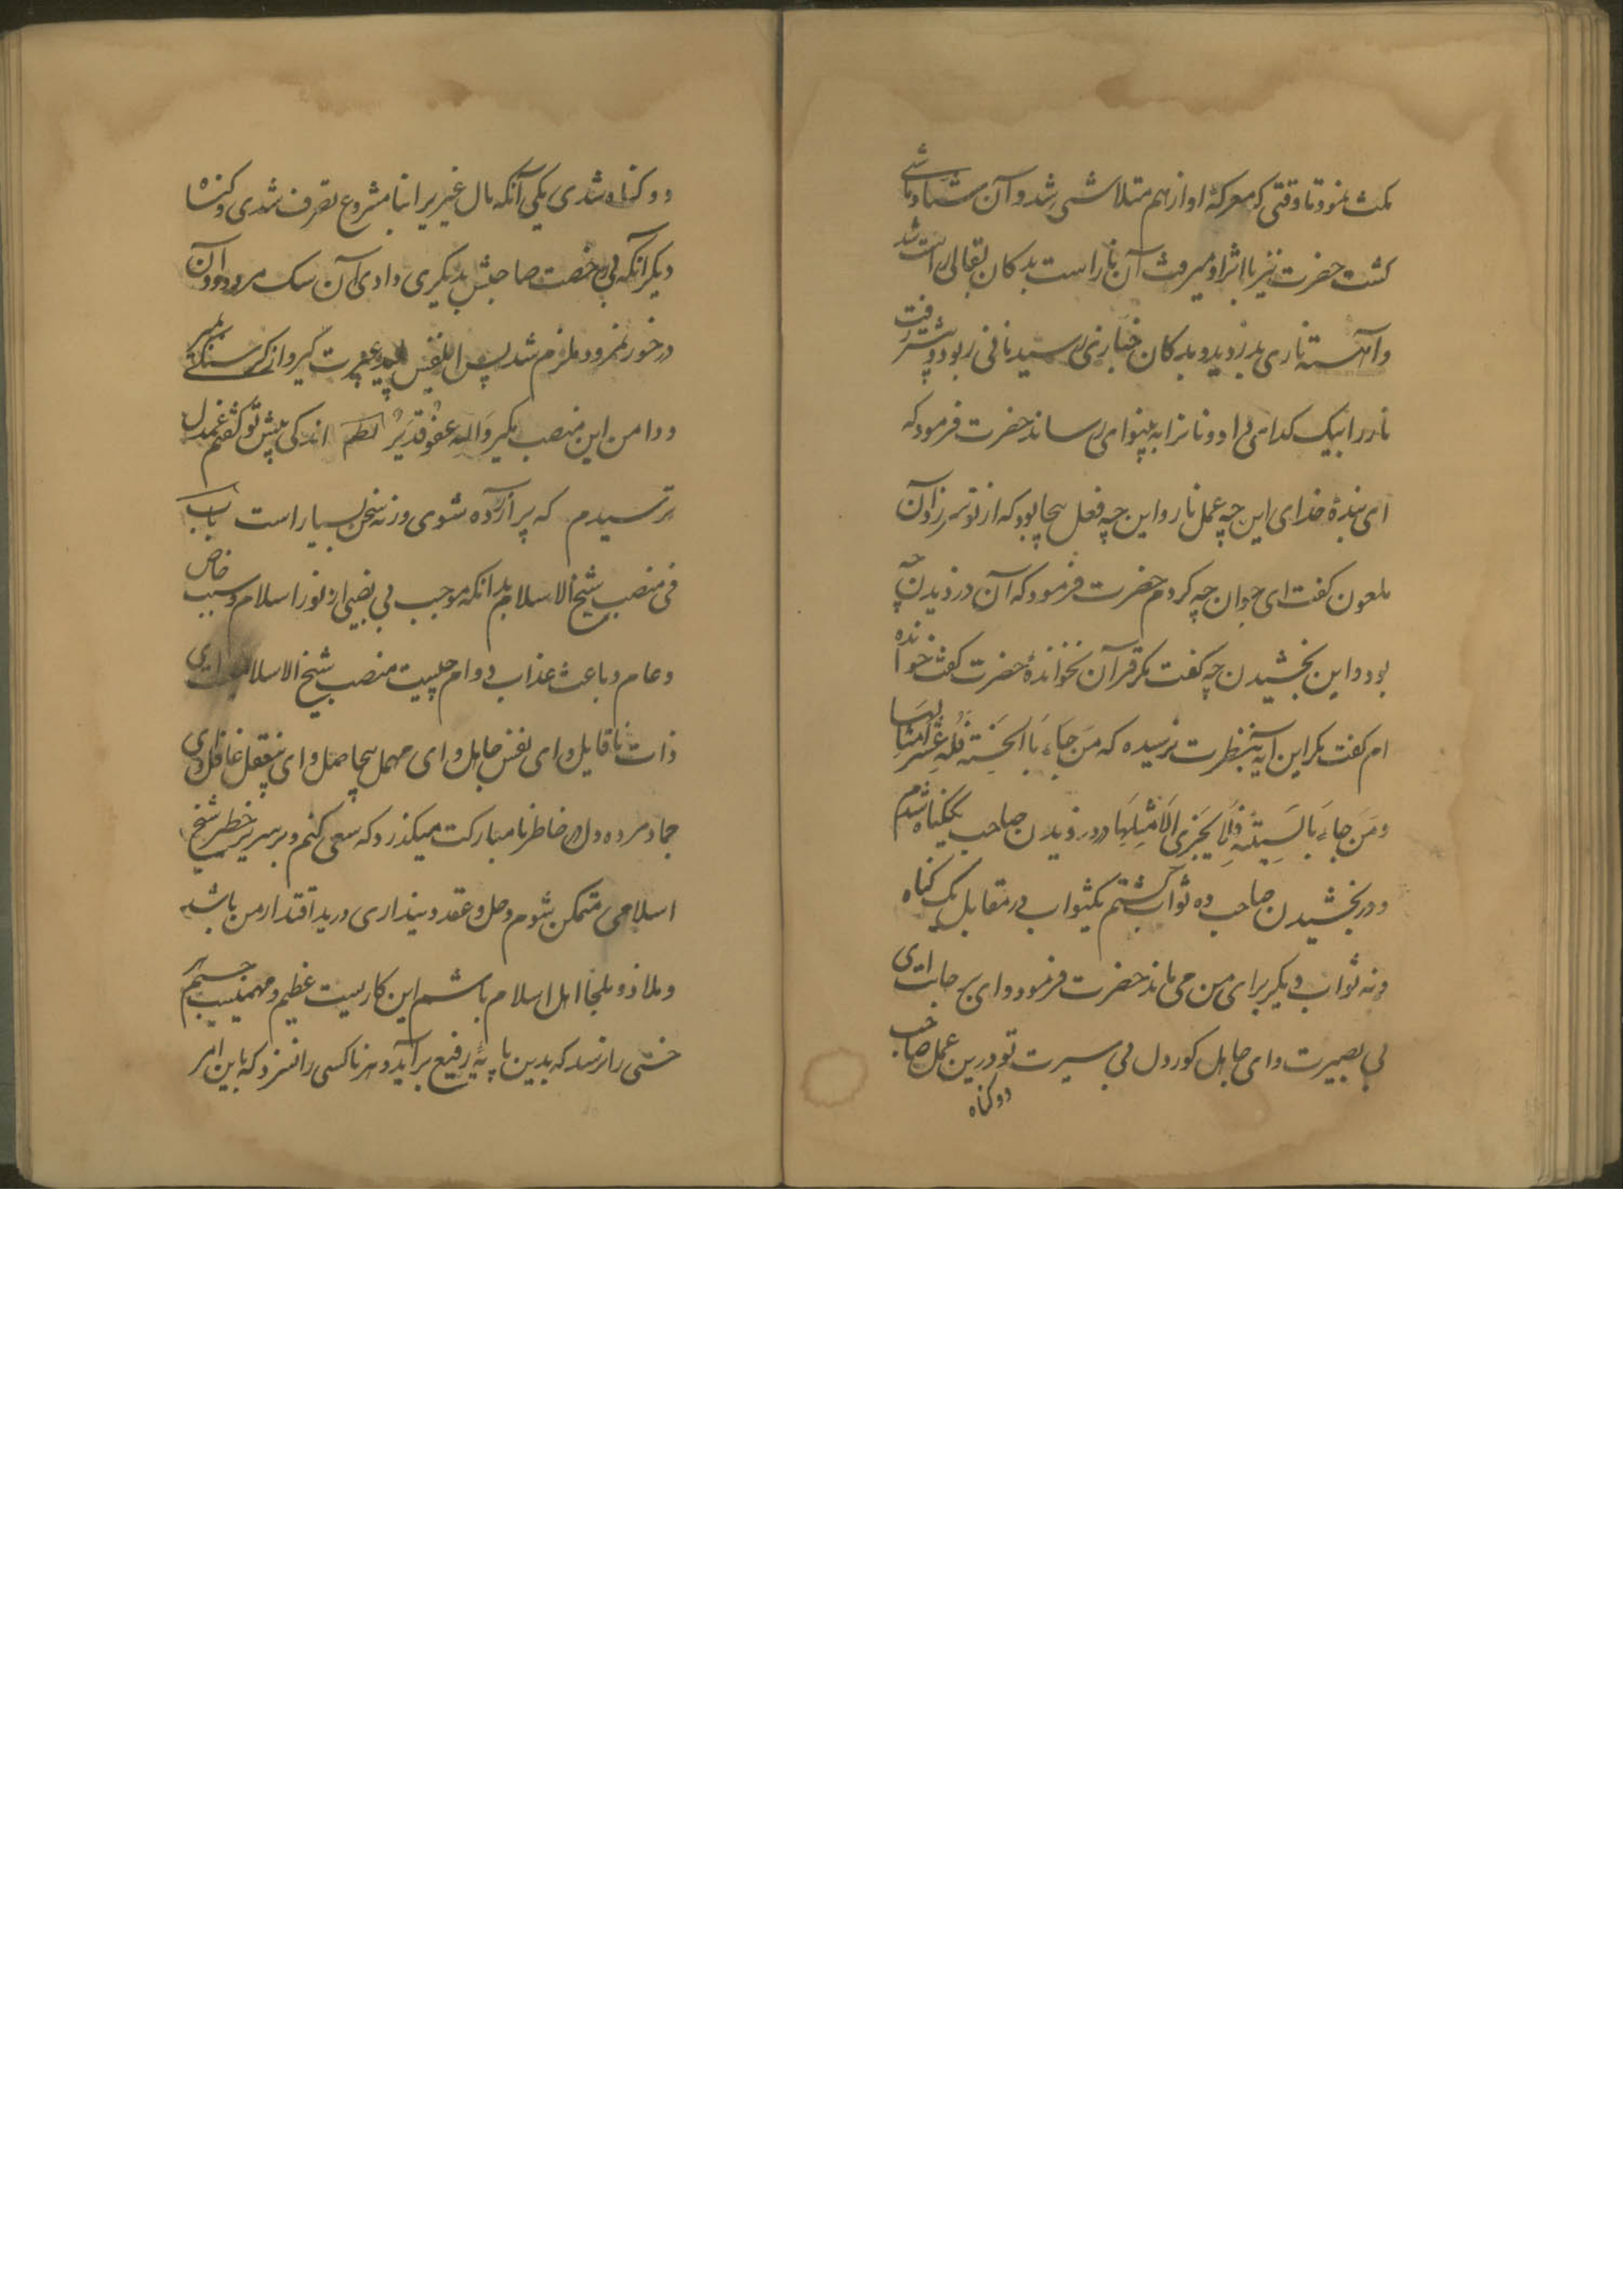 مکث نمود تا وقتی که معرکهٔ او از هم متلاشی شد و آن شیاد ماشی
کشت حضرت نیز با اثر او میرفت آن ناراست بدکان بقالی راست شد
و آهسته ناری بدزدید و بدکان خبازی رسید نانی ربود و پیشتر رفت
نار را بیک کدایی داد و نانرا به بینوایی رساند حضرت فرمود که
ای بندهٔ خدای این چه عمل ناروا این چه فعل بیجا بود که از تو سر زد آن
ملعون کفت ای جوان چه کردم حضرت فرمود که آن دزدیدن چه
بود و این بخشیدن چه کفت مکر قرآن نخواندهٔ حضرت کفت خوانده
ام کفت مکر این آیه بنظرت نرسیده که مَن جاءَ بِالحَسَنَةِ فَلَهُ عَشرُ اَمثالِهَا
وَمَن جاءَ بِالسَّیِّئَةِ فَلا یُجزی اِلّا مِثلَهَا در دزدیدن صاحب یکگناه شدم
و در بخشیدن صاحب ده ثواب کشتم یکثواب در مقابل یک کناه
و نه ثواب دیکر برای من می ماند حضرت فرمود وای بر جانت ای
بی بصیرت وای جاهل کور دل بی سیرت تو درین عمل صاحب
دو کناه
دو کناه شدی یکی آنکه مال غیریرا نامشروع تصرف شدی و کناه
دیکر آنکه بی رخصت صاحبش بدیکری دادی آن سک مردود و آن
در خور نمرود ملزم شد پس ای نفس پلید عبرت کیر و از کرسنکی بمیر
و دامن این منصب مکیر وَاللّه عفوٌ قدیرٌ نظم اندکی پیش تو کفتم غم دل
ترسیدم که پر آزرده شوی ورنه سخن بسیار است باب
فی منصب شیخ الاسلام بدانکه موجب بی نصیبی از نور اسلام و سبب خاص
و عام و باعث عذاب دوام چیست منصب شیخ الاسلامیست ای
ذات ناقابل و ای نفس جاهل و ای مهمل بیحاصل و ای بیعقل غافل و ای
جماد مرده دل در خاطر نامبارکت میکذرد که سعی کنم و بر سریر خطیر شیخ
اسلامی متمکن شوم و حل و عقد دینداری در ید اقتدار من باشد
و ملاذ و ملجا اهل اسلام باشم این کاریست عظیم و مهمیست جسیم
خسی را نرسد که بدین پایهٔ رفیع برآید و هر ناکسی را نسزد که باین امر